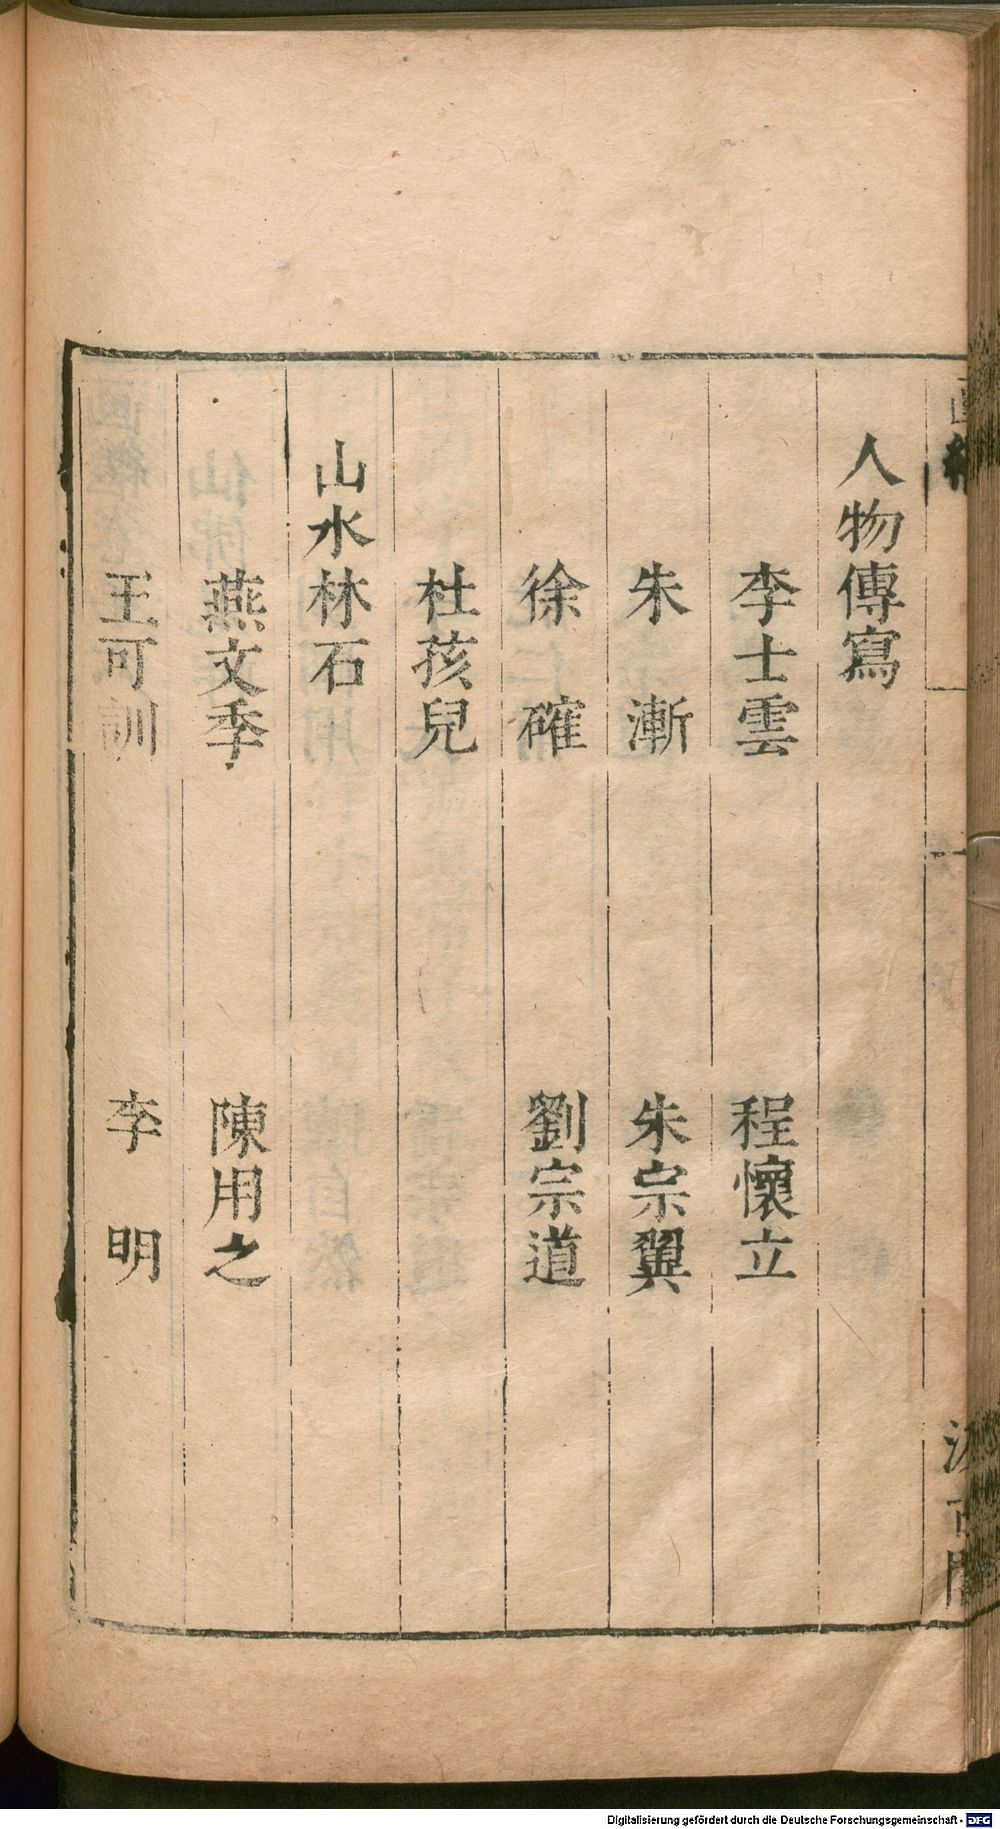 人物傳寫
李士雲 程懷立
朱漸 朱宗翼
徐確 劉宗道
杜孩兒
山水林石
燕文季 陳用之
王可訓 李明
Digitalisierung gefördert durch die Deutsche Forschungsgemeinschaft - DFG